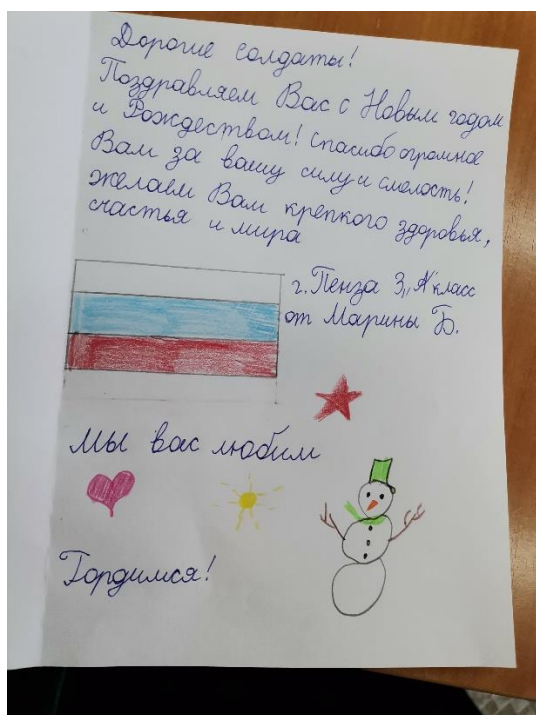 Дорогие солдаты!
Поздравляем Вас с Новым годом
и Рождеством! Спасибо огромное
Вам за вашу силу и смелость!
Желаем Вам крепкого здоровья,
счастья и мира
г. Пенза 3 „А" класс
от Марины Б.
Мы вас любим
Гордимся!